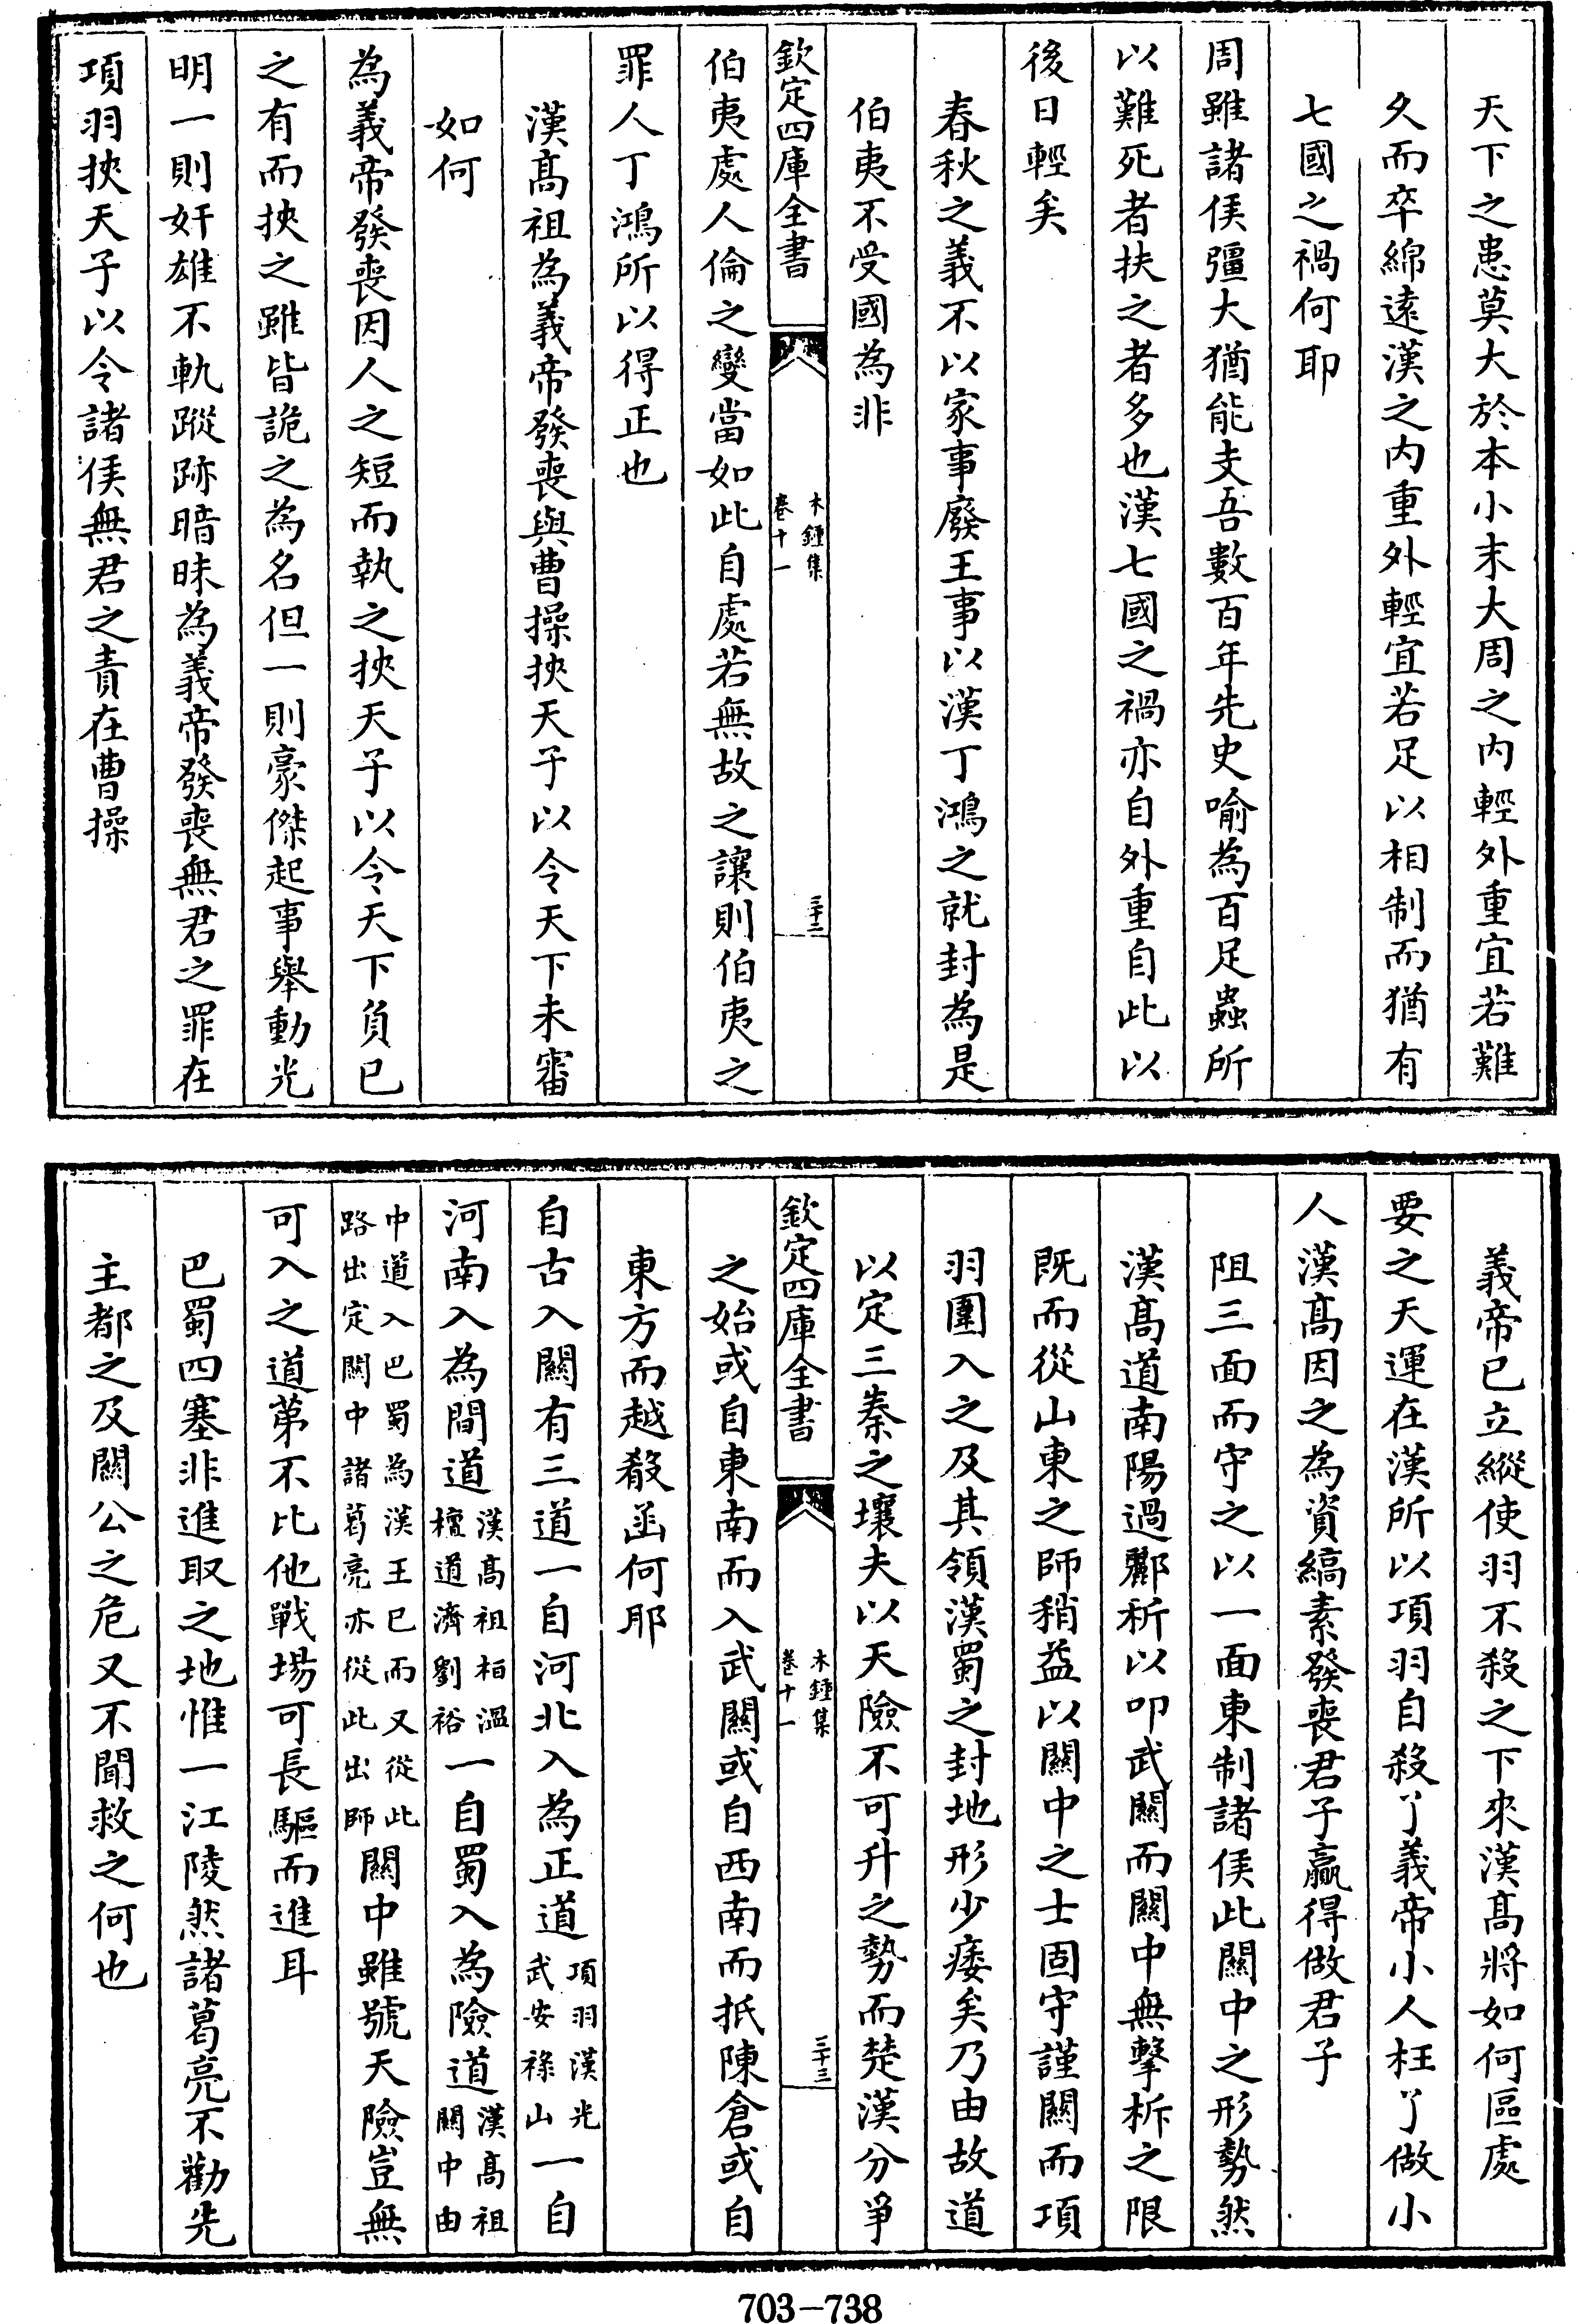 天下之患莫大於本小末大周之内輕外重宜若難
久而卒綿遠漢之内重外輕宜若足以相制而猶有
七國之禍何耶
周雖諸侯彊大猶能支吾數百年先史喻為百足蟲所
以難死者扶之者多也漢七國之禍亦自外重自此以
後日輕矣
春秋之義不以家事廢王事以漢丁鴻之就封為是
伯夷不受國為非
欽定四庫全書
木鍾集
卷十一
三十二
伯夷處人倫之變當如此自處若無故之讓則伯夷之
罪人丁鴻所以得正也
漢髙祖為義帝發喪與曹操挾天子以令天下未審
如何
為義帝發喪因人之短而執之挾天子以令天下負已
之有而挾之雖皆詭之為名但一則豪傑起事舉動光
明一則奸雄不軌蹤跡暗昧為義帝發喪無君之罪在
項羽挾天子以令諸侯無君之責在曹操
義帝已立縱使羽不殺之下來漢髙將如何區處
要之天運在漢所以項羽自殺了義帝小人枉了做小
人漢髙因之為資縞素發喪君子贏得做君子
阻三面而守之以一面東制諸侯此關中之形勢然
漢髙道南陽過酈析以叩武關而關中無擊柝之限
既而從山東之師稍益以關中之士固守謹關而項
羽圍入之及其領漢蜀之封地形少痿矣乃由故道
以定三秦之壤夫以天險不可升之勢而楚漢分爭
欽定四庫全書
木鍾集
卷十一
三十三
之始或自東南而入武關或自西南而抵陳倉或自
東方而越殽函何耶
自古入關有三道一自河北入為正道項羽漢光武安祿山一自
河南入為間道漢髙祖桓溫檀道濟劉裕一自蜀入為險道漢髙祖關中由
中道入巴蜀為漢王已而又從此路出定關中諸葛亮亦從此出師關中雖號天險豈無
可入之道第不比他戰場可長驅而進耳
巴蜀四塞非進取之地惟一江陵然諸葛亮不勸先
主都之及關公之危又不聞救之何也
703-738